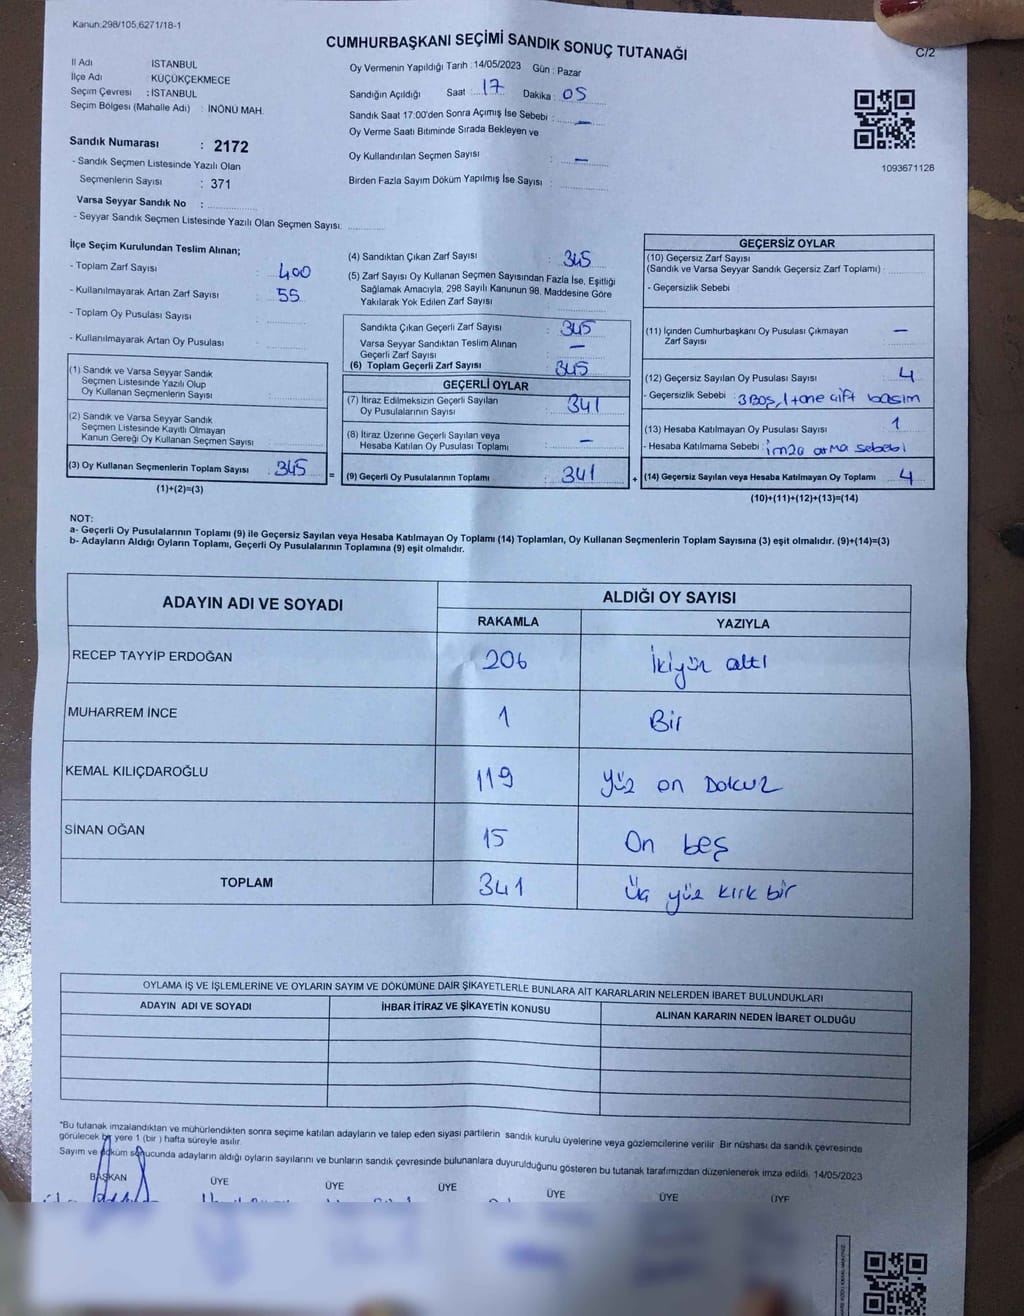 Kanun:298/105,6271/18-1
CUMHURBAŞKANI SEÇİMİ SANDIK SONUÇ TUTANAĞI
C/2
İl Adı İSTANBUL
İlçe Adı KÜÇÜKÇEKMECE
Seçim Çevresi : İSTANBUL
Seçim Bölgesi (Mahalle Adı) : İNÖNÜ MAH.
Sandık Numarası : 2172
- Sandık Seçmen Listesinde Yazılı Olan
Seçmenlerin Sayısı : 371
Varsa Seyyar Sandık No :
- Seyyar Sandık Seçmen Listesinde Yazılı Olan Seçmen Sayısı:
Oy Vermenin Yapıldığı Tarih : 14/05/2023 Gün : Pazar
Sandığın Açıldığı Saat : 17 Dakika : 05
Sandık Saat 17:00'den Sonra Açımış İse Sebebi : —
Oy Verme Saati Bitiminde Sırada Bekleyen ve
Oy Kullandırılan Seçmen Sayısı : —
Birden Fazla Sayım Döküm Yapılmış İse Sayısı :
1093671128
İlçe Seçim Kurulundan Teslim Alınan;
- Toplam Zarf Sayısı : 400
- Kullanılmayarak Artan Zarf Sayısı : 55
- Toplam Oy Pusulası Sayısı :
- Kullanılmayarak Artan Oy Pusulası :
(1) Sandık ve Varsa Seyyar Sandık
Seçmen Listesinde Yazılı Olup
Oy Kullanan Seçmenlerin Sayısı :
(2) Sandık ve Varsa Seyyar Sandık
Seçmen Listesinde Kayıtlı Olmayan
Kanun Gereği Oy Kullanan Seçmen Sayısı :
(3) Oy Kullanan Seçmenlerin Toplam Sayısı : 345
(1)+(2)=(3)
=
(4) Sandıktan Çıkan Zarf Sayısı : 345
(5) Zarf Sayısı Oy Kullanan Seçmen Sayısından Fazla İse, Eşitliği
Sağlamak Amacıyla, 298 Sayılı Kanunun 98. Maddesine Göre
Yakılarak Yok Edilen Zarf Sayısı :
Sandıkta Çıkan Geçerli Zarf Sayısı : 345
Varsa Seyyar Sandıktan Teslim Alınan
Geçerli Zarf Sayısı : —
(6) Toplam Geçerli Zarf Sayısı : 345
GEÇERLİ OYLAR
(7) İtiraz Edilmeksizin Geçerli Sayılan
Oy Pusulalarının Sayısı : 341
(8) İtiraz Üzerine Geçerli Sayılan veya
Hesaba Katılan Oy Pusulası Toplamı : —
(9) Geçerli Oy Pusulalarının Toplamı : 341
+
GEÇERSİZ OYLAR
(10) Geçersiz Zarf Sayısı
(Sandık ve Varsa Seyyar Sandık Geçersiz Zarf Toplamı) :
- Geçersizlik Sebebi :
(11) İçinden Cumhurbaşkanı Oy Pusulası Çıkmayan
Zarf Sayısı : —
(12) Geçersiz Sayılan Oy Pusulası Sayısı : 4
- Geçersizlik Sebebi : 3 Boş, 1 tane çift basım
(13) Hesaba Katılmayan Oy Pusulası Sayısı : 1
- Hesaba Katılmama Sebebi : imza atma sebebi
(14) Geçersiz Sayılan veya Hesaba Katılmayan Oy Toplamı : 4
(10)+(11)+(12)+(13)=(14)
NOT:
a- Geçerli Oy Pusulalarının Toplamı (9) ile Geçersiz Sayılan veya Hesaba Katılmayan Oy Toplamı (14) Toplamları, Oy Kullanan Seçmenlerin Toplam Sayısına (3) eşit olmalıdır. (9)+(14)=(3)
b- Adayların Aldığı Oyların Toplamı, Geçerli Oy Pusulalarının Toplamına (9) eşit olmalıdır.
ADAYIN ADI VE SOYADI ALDIĞI OY SAYISI
RAKAMLA YAZIYLA
RECEP TAYYİP ERDOĞAN 206 İkiyüz altı
MUHARREM İNCE 1 Bir
KEMAL KILIÇDAROĞLU 119 Yüz on Dokuz
SİNAN OĞAN 15 On beş
TOPLAM 341 Üç yüz kırk bir
OYLAMA İŞ VE İŞLEMLERİNE VE OYLARIN SAYIM VE DÖKÜMÜNE DAİR ŞİKAYETLERLE BUNLARA AİT KARARLARIN NELERDEN İBARET BULUNDUKLARI
ADAYIN ADI VE SOYADI İHBAR İTİRAZ VE ŞİKAYETİN KONUSU ALINAN KARARIN NEDEN İBARET OLDUĞU
*Bu tutanak imzalandıktan ve mühürlendikten sonra seçime katılan adayların ve talep eden siyasi partilerin sandık kurulu üyelerine veya gözlemcilerine verilir. Bir nüshası da sandık çevresinde
görülecek bir yere 1 (bir ) hafta süreyle asılır.
Sayım ve döküm sonucunda adayların aldığı oyların sayılarını ve bunların sandık çevresinde bulunanlara duyurulduğunu gösteren bu tutanak tarafımızdan düzenlenerek imza edildi. 14/05/2023
BAŞKAN ÜYE ÜYE ÜYE ÜYE ÜYE ÜYE